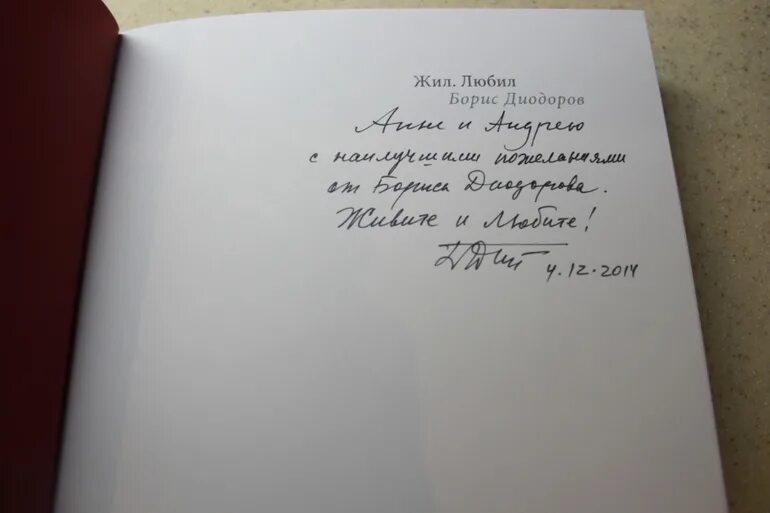 Жил. Любил
Борис Диодоров
Анне и Андрею
с наилучшими пожеланиями
от Бориса Диодорова.
Живите и Любите!
4.12.2014